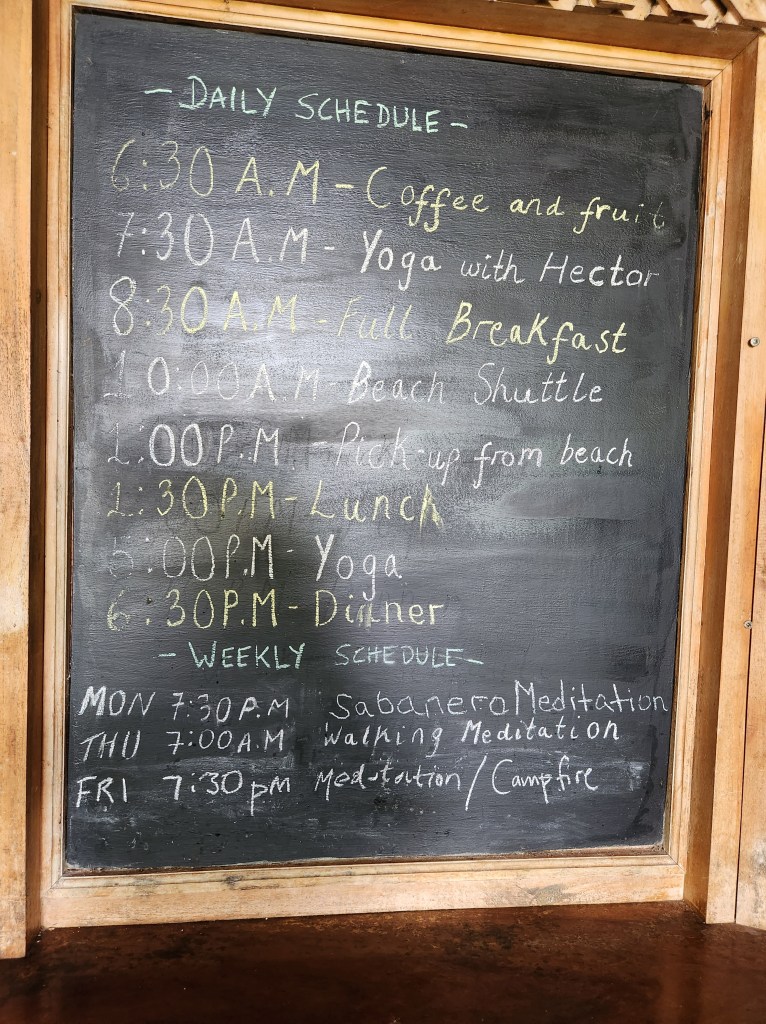 - DAILY SCHEDULE -
6:30 A.M - Coffee and fruit
7:30 A.M - Yoga with Hector
8:30 A.M - Full Breakfast
10:00 A.M - Beach Shuttle
1:00 P.M. - Pick-up from beach
1:30 P.M - Lunch
5:00 P.M - Yoga
6:30 P.M - Dinner
- WEEKLY SCHEDULE -
MON 7:30 P.M Sabanero Meditation
THU 7:00 A.M Walking Meditation
FRI 7:30 pm Meditation / Campfire